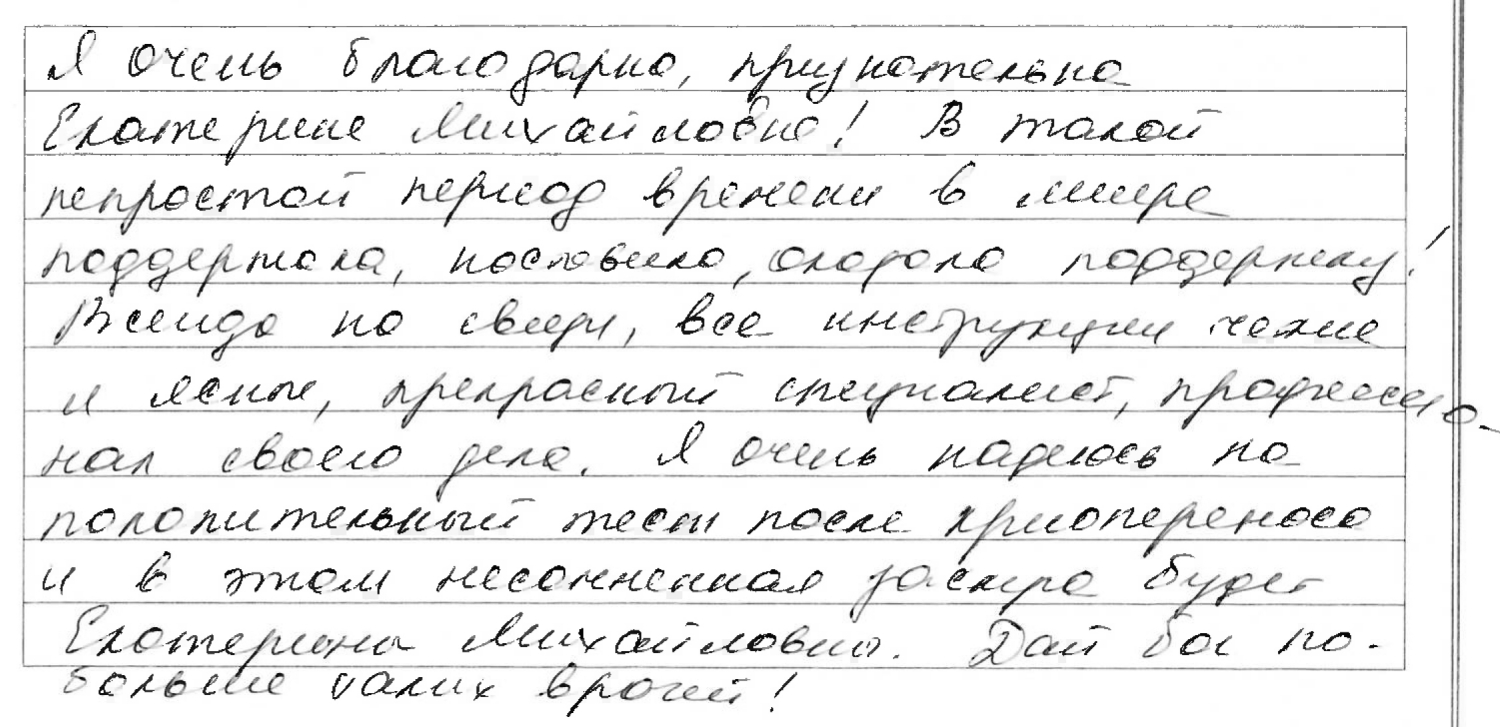 Я очень благодарна, признательна
Екатерине Михайловне! В такой
непростой период времени в мире
поддержала, настроила, оказала поддержку!
Всегда на связи, все инструкции четкие
и ясные, прекрасный специалист, профессио-
нал своего дела. Я очень надеюсь на
положительный тест после криопереноса
и в этом несомненная заслуга будет
Екатерины Михайловны. Дай бог по-
больше таких врачей!